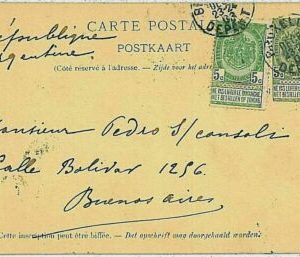 CARTE POSTAL
POSTKAART
(Côté réservé à l'adresse. — Zijde voor het adres
République
Argentine
DEPART
DEPART
5c 5c
5c
NE PAS LIVRER LE DIMANCHE
NIET BESTELLEN OP ZONDAG
Monsieur Pedro S/consoli
Calle Bolivar 1256.
Buenos aires
Cette inscription peut être biffée. — Dit opschrift mag doorgehaald worden.